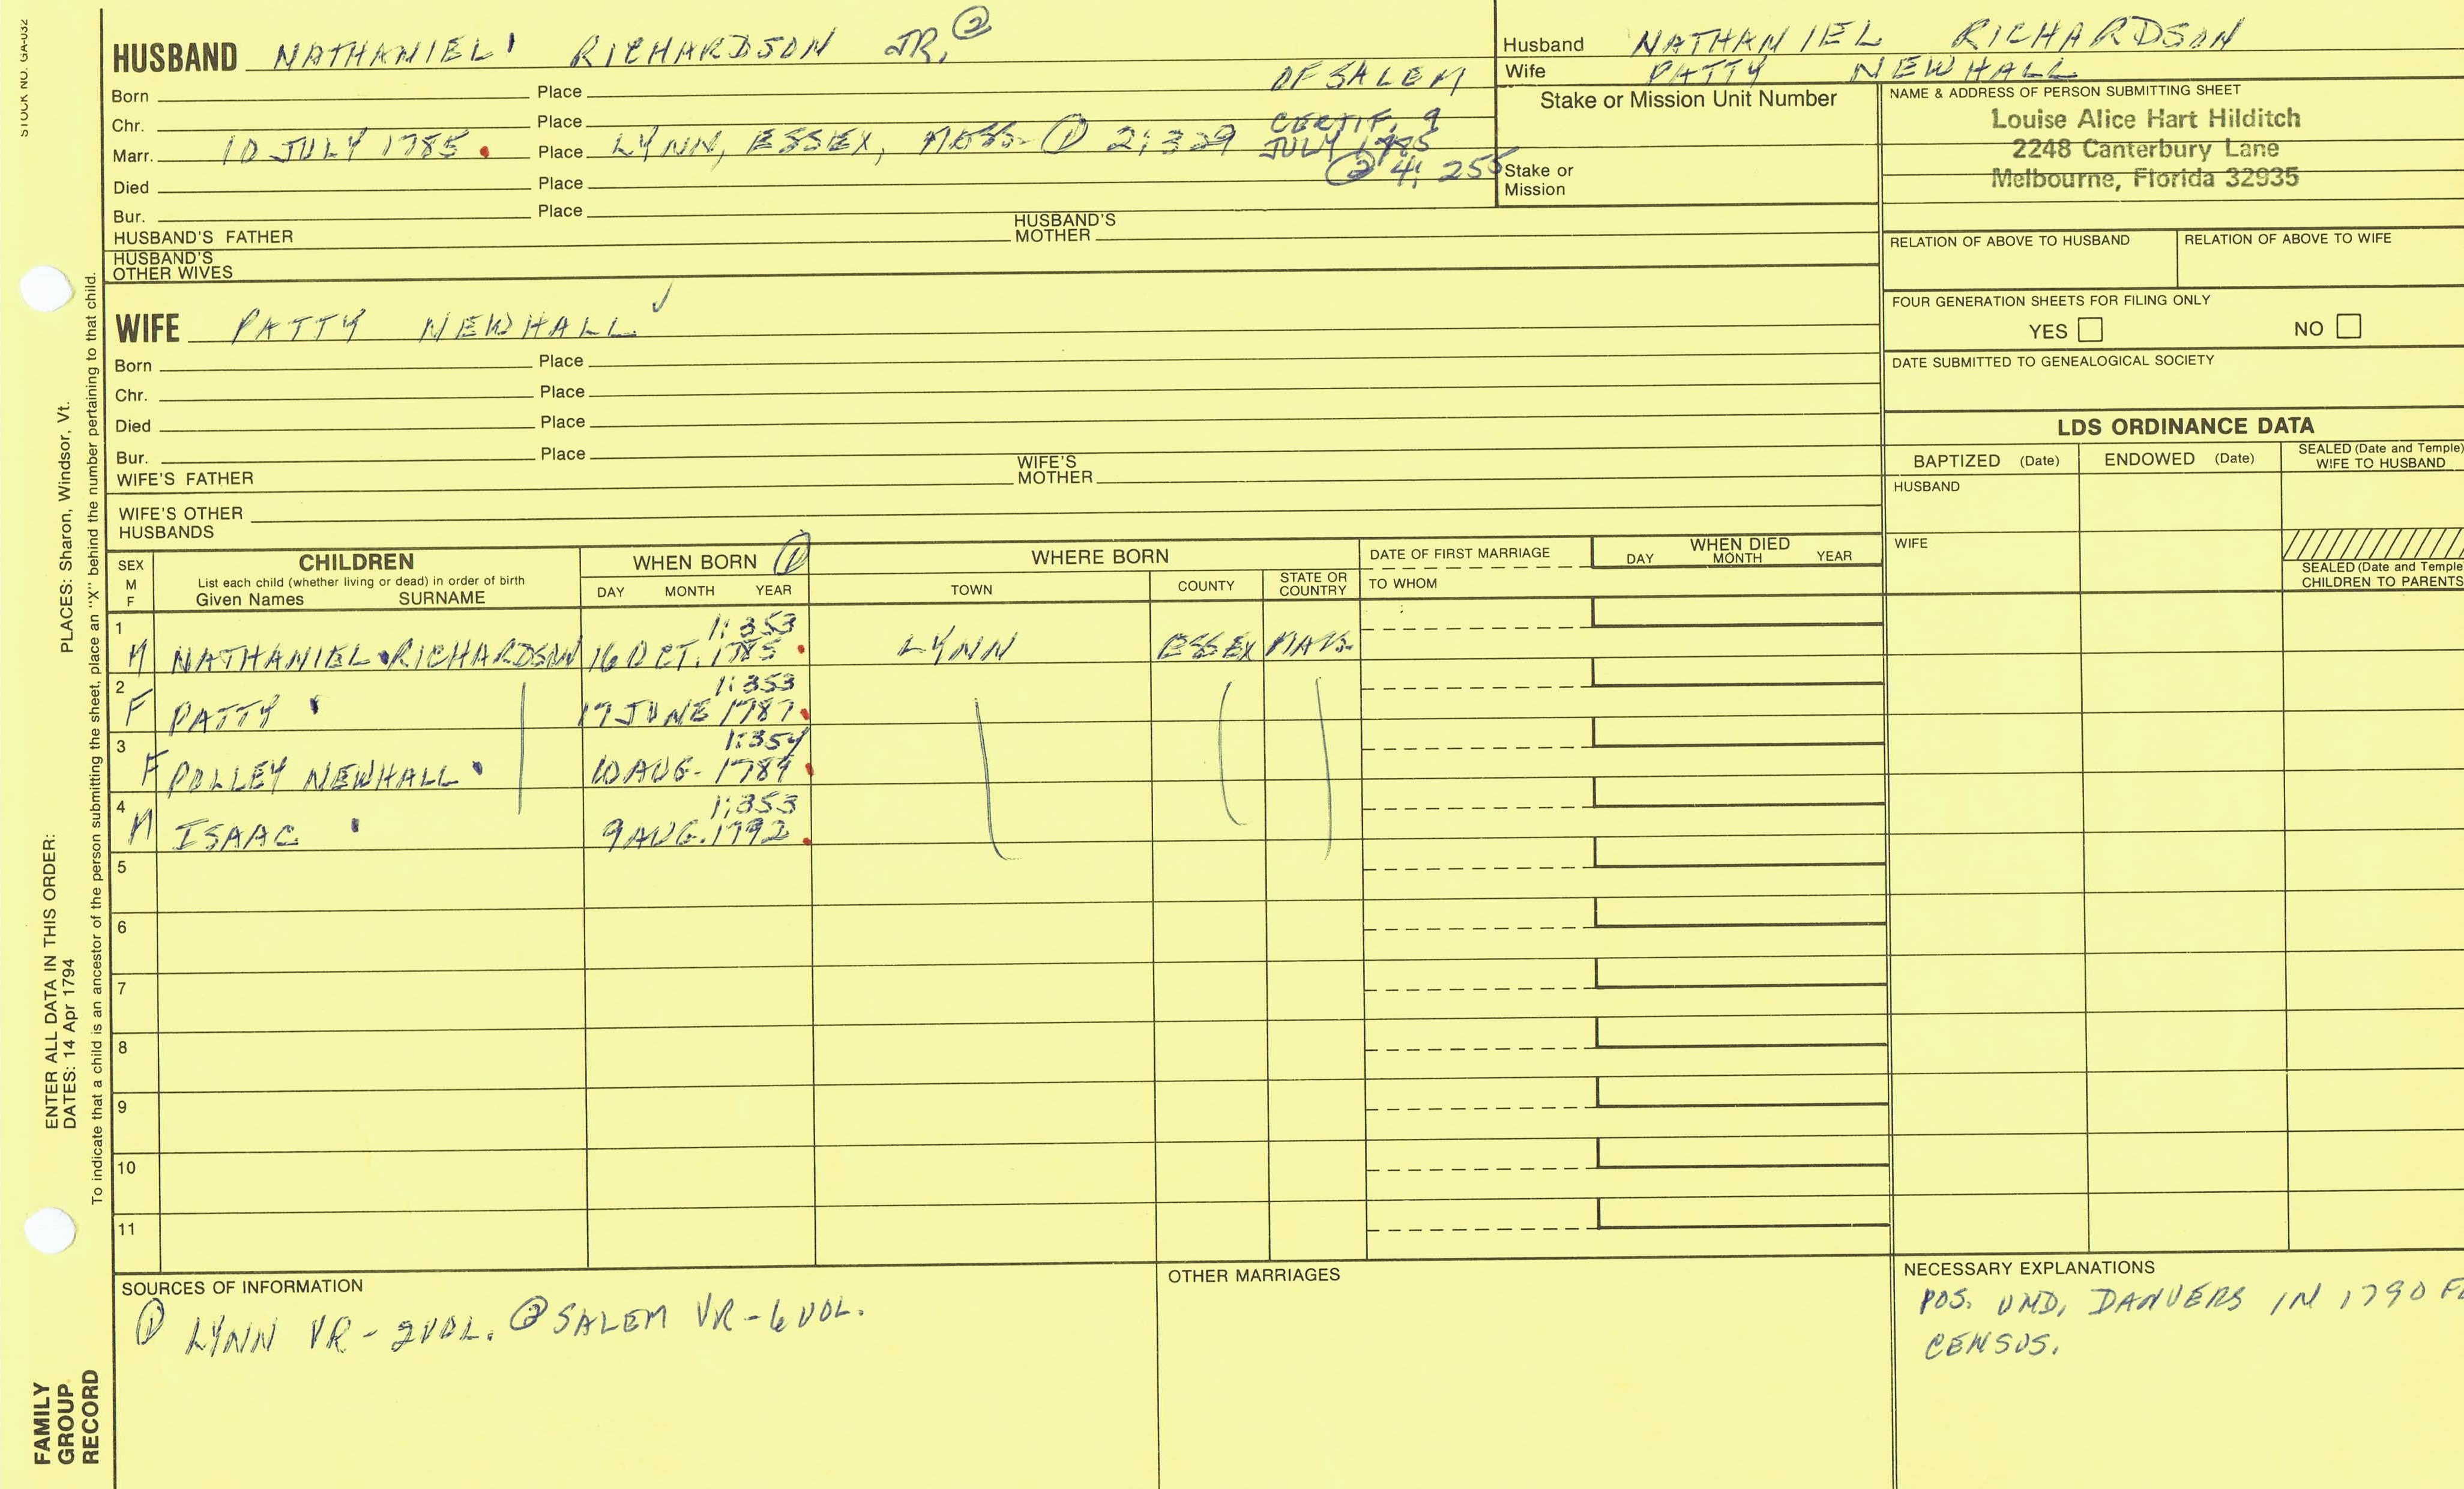 STOCK NO. GA-032
HUSBAND NATHANIEL RICHARDSON JR. ②
Born Place OF SALEM
Chr. Place CERTIF. 9
Marr. 10 JULY 1785. Place LYNN, ESSEX, MASS. ① 2:329 JULY 1785
② 4: 255
Died Place
Bur. Place
HUSBAND'S FATHER HUSBAND'S MOTHER
HUSBAND'S OTHER WIVES
Husband NATHANIEL RICHARDSON
Wife PATTY NEWHALL
Stake or Mission Unit Number
Stake or Mission
NAME & ADDRESS OF PERSON SUBMITTING SHEET
Louise Alice Hart Hilditch
2248 Canterbury Lane
Melbourne, Florida 32935
RELATION OF ABOVE TO HUSBAND RELATION OF ABOVE TO WIFE
FOUR GENERATION SHEETS FOR FILING ONLY
YES NO
DATE SUBMITTED TO GENEALOGICAL SOCIETY
WIFE PATTY NEWHALL ✓
Born Place
Chr. Place
Died Place
Bur. Place
WIFE'S FATHER WIFE'S MOTHER
WIFE'S OTHER HUSBANDS
LDS ORDINANCE DATA
BAPTIZED (Date) ENDOWED (Date) SEALED (Date and Temple) WIFE TO HUSBAND
HUSBAND
WIFE
SEALED (Date and Temple
CHILDREN TO PARENTS
SEX M F
CHILDREN
List each child (whether living or dead) in order of birth
Given Names SURNAME
WHEN BORN ①
DAY MONTH YEAR
WHERE BORN
TOWN COUNTY STATE OR COUNTRY
DATE OF FIRST MARRIAGE
TO WHOM
WHEN DIED
DAY MONTH YEAR
1 1:353
M NATHANIEL RICHARDSON 16 OCT. 1785. LYNN ESSEX MASS.
2 1:353
F PATTY 17 JUNE 1787.
3 1:354
F POLLEY NEWHALL 10 AUG. 1789.
4 1:353
M ISAAC 9 AUG. 1792.
5
6
7
8
9
10
11
SOURCES OF INFORMATION
① LYNN VR - 2 VOL. ② SALEM VR - 6 VOL.
OTHER MARRIAGES
NECESSARY EXPLANATIONS
POS. UND, DANVERS IN 1790 FE
CENSUS.
PLACES: Sharon, Windsor, Vt.
ENTER ALL DATA IN THIS ORDER:
DATES: 14 Apr 1794
To indicate that a child is an ancestor of the person submitting the sheet, place an "X" behind the number pertaining to that child.
FAMILY
GROUP
RECORD